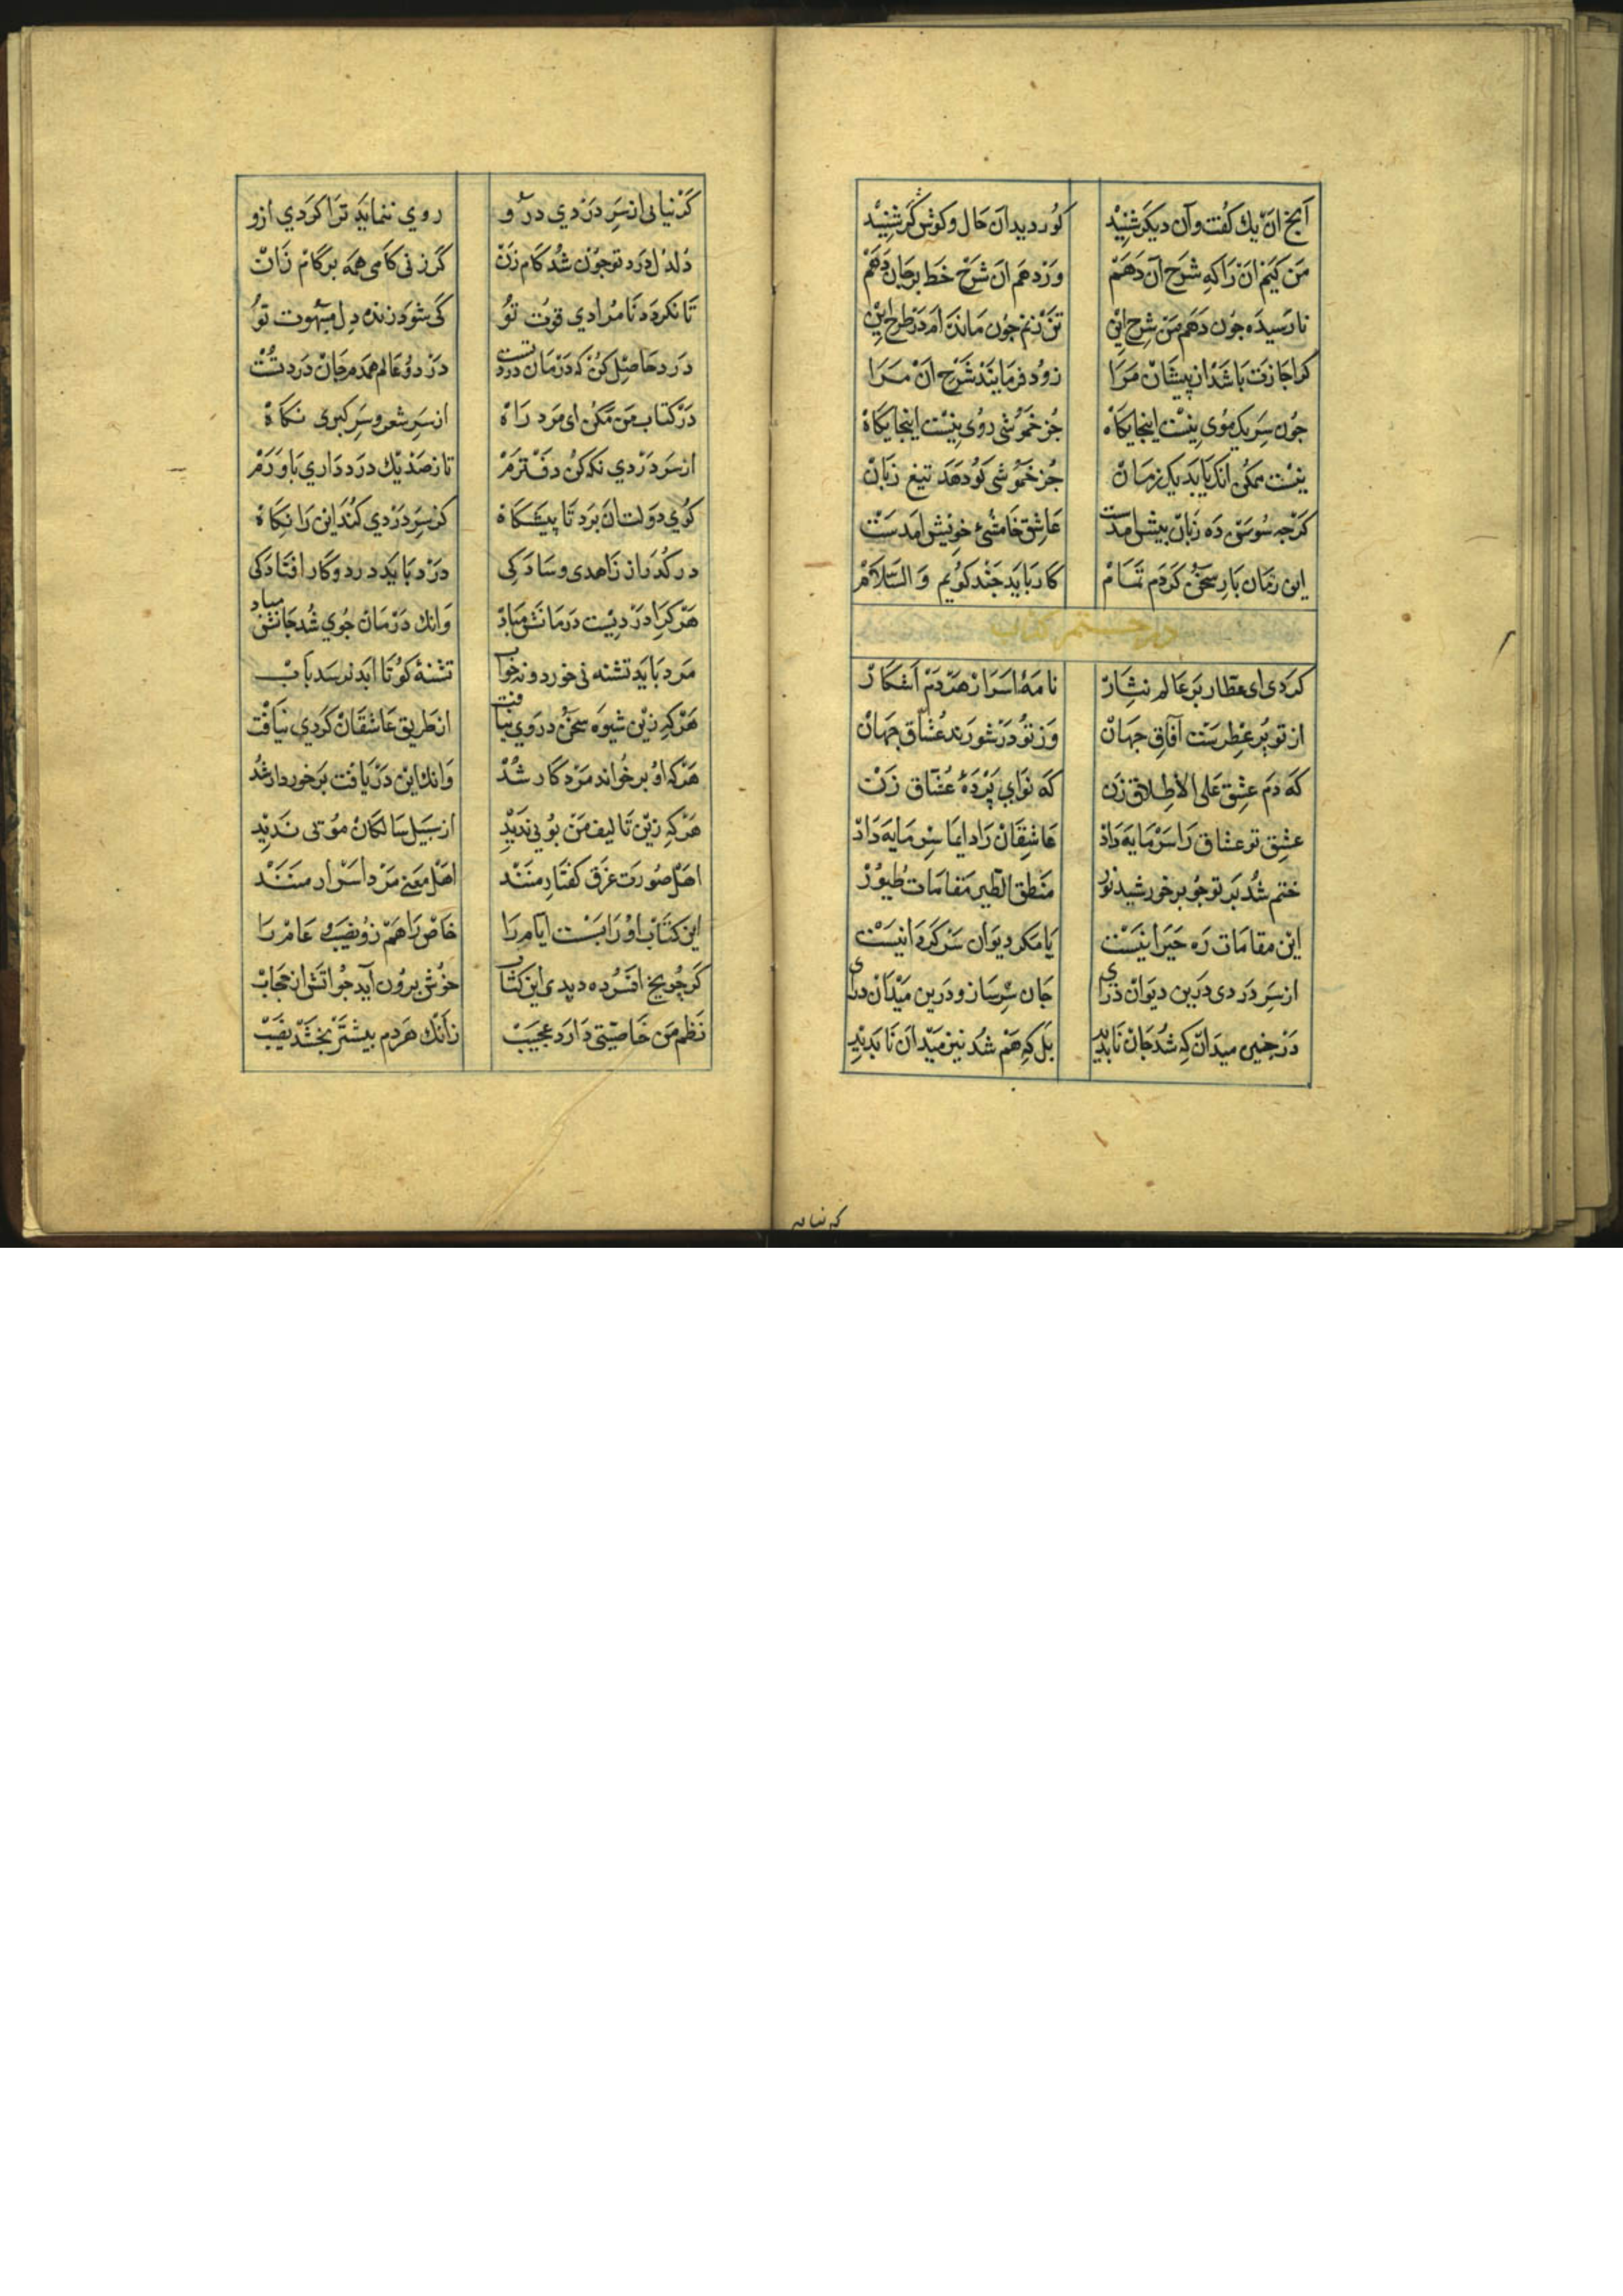 آنچ ان یك كفت وآن دیكر شنید كور دید آن حال وكوش كر شنید
من كیم انرا كه شرح آن دهم ور دهم ان شرح خط بر جان دهم
نارسیده چون دهم من شرح این تن زنم چون مانده ام در طرح این
كر اجازت باشد از پیشان مرا زود فرمایند شرح ان مرا
جون سر یك موی نیست اینجایكاه جز خموشی روی نیست اینجایكاه
نیست ممكن انك یابد یك زمان جز خموشی كوهر تیغ زبان
كرجه سوسن ده زبان بیش امدست عاشق خامشئ خویش امدست
این زمان باری سخن كردم تمام كار باید جند كویم والسلام
در ختم كتاب
كردی ای عطار بر عالم نثار نامهٔ اسرار هر دم آشكار
از تو پر عطرست آفاق جهان وز تو در شورند عشاق جهان
كه دم عشق علی الاطلاق زن كه نوای پردهٔ عشاق زن
عشق تو عشاق را سرمایه داد عاشقان را دایما سرمایه داد
ختم شد بر تو جو بر خورشید نور منطق الطیر مقامات طیور
این مقامات ره حیرانیست یا مكر دیوان سركردانیست
از سر دردی درین دیوان درای جان سپر ساز ودرین میدان درای
در جنین میدان كه شد جان نابدید بل كه هم شد نیز میدان نابدید
كه نیایی
كر نیایی از سر دردی درو روی ننماید ترا كردی ازو
دلدل درد تو جون شد كام زن كر زنی كامی همه بر كام زن
تا نكردد نامرادی قوت تو كی شود زنده دل مبهوت تو
درد حاصل كن كه درمان درد تست در دو عالم همدم جان درد تست
در كتاب من مكن ای مرد راه از سر شعر وسر كبری نكاه
از سر دردی نكه كن دفترم تا ز صد یك درد داری باورم
كوی دولت ان برد تا پیشكاه كز سر دردی كند این را نكاه
در كذر از زاهدی وسادكی درد باید درد وكار افتادكی
هر كرا دردیست درمانش مباد وانك درمان جوی شد جانش مباد
مرد باید تشنه بی خورد و نه خواب تشنهٔ كو تا ابد نرسد باب
هر كه زین شیوه سخن دردی نیافت از طریق عاشقان كردی نیافت
هر كه او بر خواند مرد كار شد وانك این دریافت برخوردار شد
هر كه زین تالیف من بویی ندید از سبیل سالكان مویی ندید
اهل صورت غرق كفتار منند اهل معنی مرد اسرار منند
این كتاب اورا بست ایام را خاص را هم زو نصیب و عام را
كر جو یخ افسرده دید ی این كتاب خوش برون آید جو اتش از حجاب
نظم من خاصیتی دارد عجیب زانك هر دم بیشتر بخشد نصیب